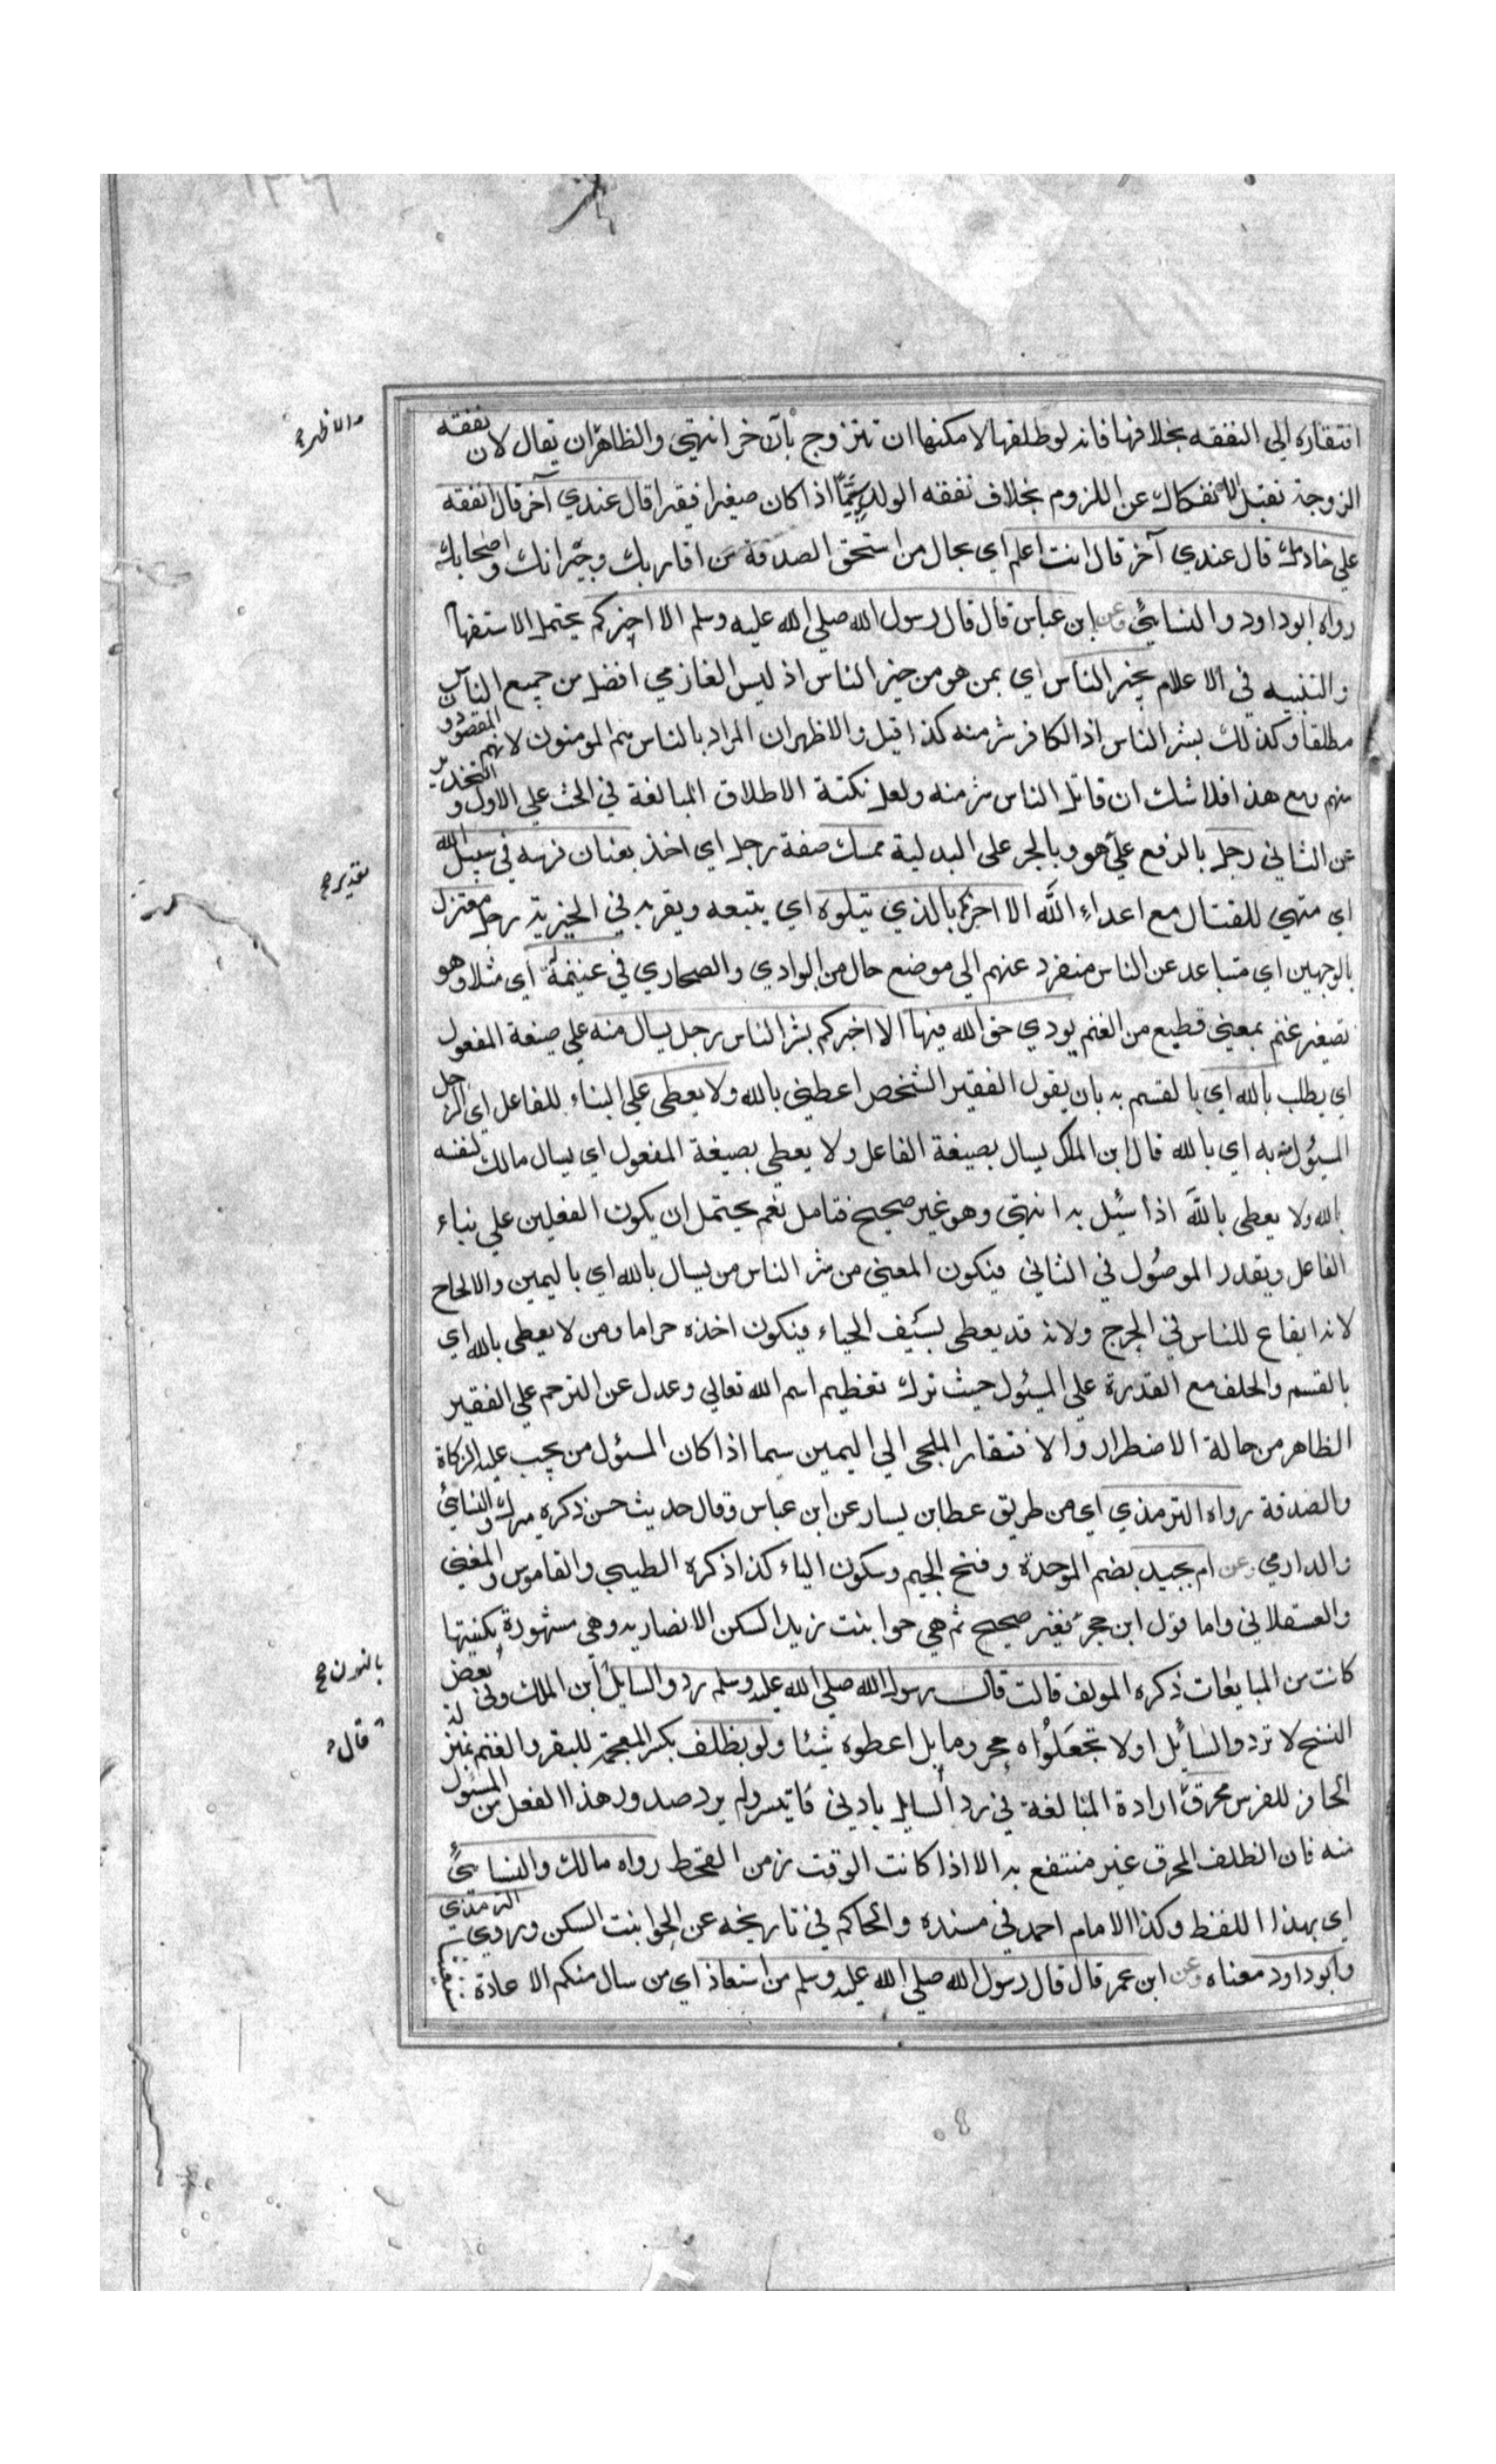 افتقاره الي النفقه بخلافها فانه لو طلقها لامكنها ان تتزوج بآخر انتهي والظاهر ان يقال لان نفقه
الزوجة تقبل الانفكاك عن اللزوم بخلاف نفقه الولد سيما اذا كان صغيرا فقيرا قال عندي آخر قال انفقه
علي خادمك قال عندي آخر قال انت اعلم اي بحال من استحق الصدقة من اقاربك وجيرانك واصحابك
رواه ابو داود والنسائي وعن ابن عباس قال قال رسول الله صلي الله عليه وسلم الا اخبركم يحتمل الاستفهام
والتنبيه في الاعلام بخير الناس اي بمن هو من خير الناس اذ ليس الغازي افضل من جميع الناس
مطلقا وكذلك بشر الناس اذ الكافر شر منه كذا قيل والاظهر ان المراد بالناس هم المومنون لانهم المقصود
منهم ومع هذا فلا شك ان قاتل الناس شر منه ولعل نكتة الاطلاق المبالغة في الحث علي الاول والتحذير
عن الثاني رجل بالرفع علي هو وبالجر على البدلية ممسك صفة رجل اي اخذ بعنان فرسه في سبيل الله
اي متهي للقتال مع اعداء الله الا اخبركم بالذي يتلوه اي يتبعه ويقربه في الخيرية رجل معتزل
بالوجهين اي متباعد عن الناس منفرد عنهم الي موضع خال من البوادي والصحاري في غنيمة اي مثلا وهو
تصغير غنم بمعني قطيع من الغنم يودي حق الله فيها الا اخبركم بشر الناس رجل يسال منه علي صيغة المفعول
اي يطلب بالله اي بالقسم به بان يقول الفقير الشخص اعطني بالله ولا يعطى علي البناء للفاعل اي الرجل
المسئول منه به اي بالله قال ابن الملك يسال بصيغة الفاعل ولا يعطي بصيغة المفعول اي يسال مالك لنفسه
بالله ولا يعطى بالله اذا سئيل به انتهي وهو غير صحيح فتامل نعم يحتمل ان يكون الفعلين علي بناء
الفاعل ويقدر الموصول في الثاني فيكون المعني من شر الناس من يسال بالله اي باليمين والالحاح
لانه ايقاع للناس في الحرج ولانه قد يعطى بسيف الحياء فيكون اخذه حراما ومن لا يعطى بالله اي
بالقسم والحلف مع القدرة علي المسئول حيث ترك تعظيم اسم الله تعالي وعدل عن الترحم علي الفقير
الظاهر من حالة الاضطرار والافتقار الملجى الي اليمين سيما اذا كان المسئول من يجب عليه الزكاة
والصدقة رواه الترمذي اي من طريق عطا بن يسار عن ابن عباس وقال حديث حسن ذكره ميرك والنسائي
والدارمي وعن ام بجيد بضم الموحدة وفتح الجيم وسكون الياء كذا ذكره الطيبي والقاموس والمغني
والعسقلاني واما قول ابن حجر فغير صحيح ثم هي حوا بنت يزيد السكن الانصاريه وهي مشهورة بكنيتها
كانت من المبايعات ذكره المولف قالت قال رسول الله صلي الله عليه وسلم ردوا السايل ابن الملك وفي بعض
النسخ لا تردوا السايل اولا تجعلوه محروما بل اعطوه شيئا ولو بظلف بكسر المعجمة للبقر والغنم بمنزلة
الحافر للفرس محرق ارادة المبالغة في رد السايل بادني ما تيسر ولم يرد صدور هذا الفعل من المسئول
منه فان الظلف المحرق غير منتفع به الا اذا كانت الوقت زمن القحط رواه مالك والنسائي
اي بهذا اللفظ وكذا الامام احمد في مسنده والحاكم في تاريخه عن الحوا بنت السكن وروي الترمذي
وابو داود معناه وعن ابن عمر قال قال رسول الله صلي الله عليه وسلم من استعاذ اي من سال منكم الاعاذة
والاظهر
تقدير
بالنون
قال